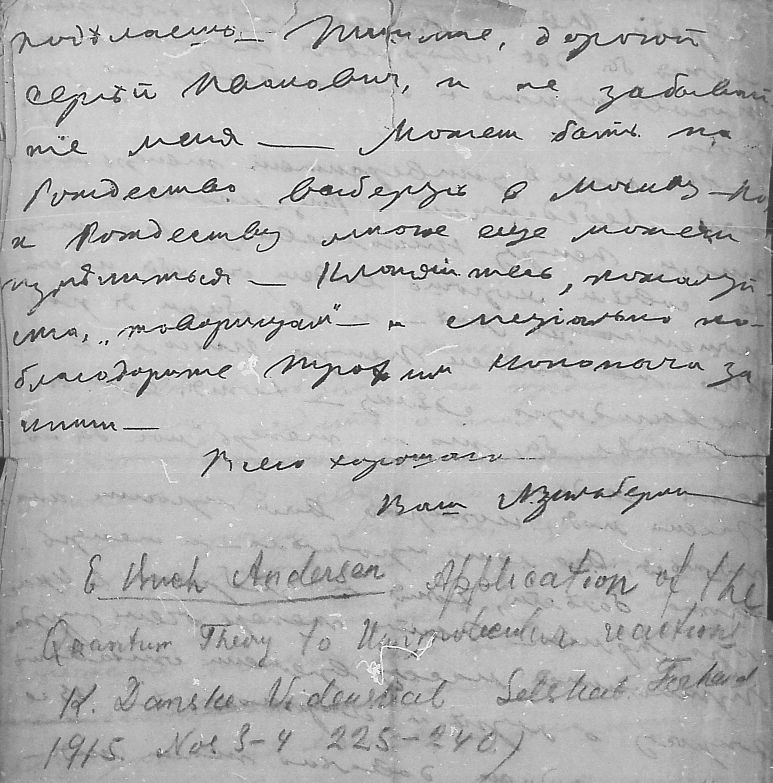 Пишите, дорогой
Сергѣй Павлович, и не забывай
те меня — Может быть на
Рождество выберусь в Москву — Но
к Рождеству многое еще может
измѣниться — Кланяйтесь, пожалуй-
ста, „товарищам“ — и специально по-
благодарите Трофим Кононыча за
книги —
Всего хорошаго
Ваш
E Buch Andersen Application of the
Quantum Theory to Unimolecular reactions
K. Danske Vidensкab Selskab Forhand
1915 Nos 3-4 225-240)